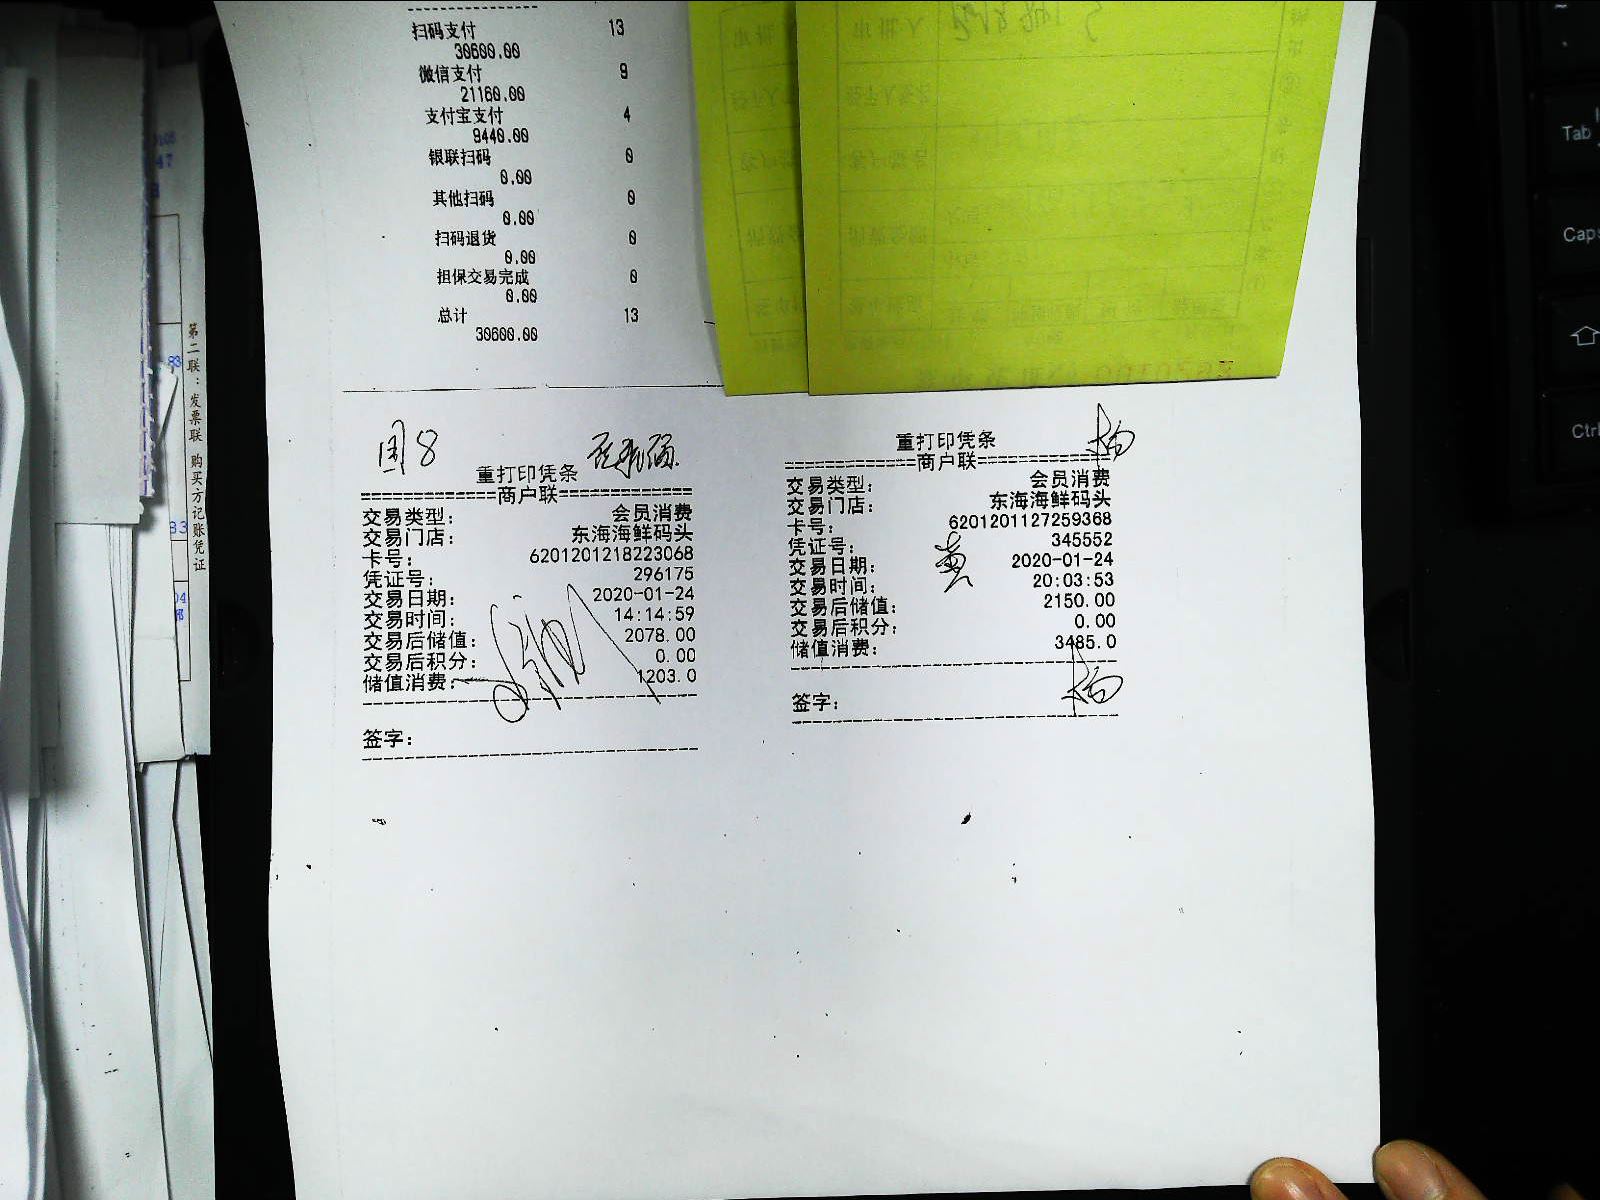 扫码支付 13
30600.00
微信支付 9
21160.00
支付宝支付 4
9440.00
银联扫码 0
0.00
其他扫码 0
0.00
扫码退货 0
0.00
担保交易完成 0
0.00
总计 13
30600.00
国8
重打印凭条
=============商户联=============
交易类型: 会员消费
交易门店: 东海海鲜码头
卡号: 6201201218223068
凭证号: 296175
交易日期: 2020-01-24
交易时间: 14:14:59
交易后储值: 2078.00
交易后积分: 0.00
储值消费: 1203.0
签字:
杨
重打印凭条
=============商户联=============
交易类型: 会员消费
交易门店: 东海海鲜码头
卡号: 6201201127259368
凭证号: 345552
黄
交易日期: 2020-01-24
交易时间: 20:03:53
交易后储值: 2150.00
交易后积分: 0.00
储值消费: 3485.0
签字: 杨
第二联：发票联 购买方记账凭证
Tab
Caps
Ctrl